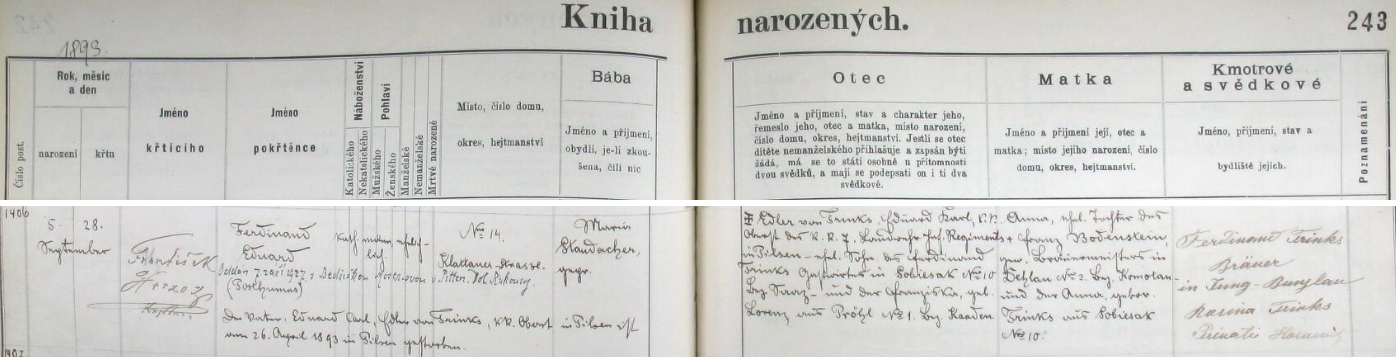 Kniha narozených.
243
1893.
Číslo post.
Rok, měsíc
a den
narození
křtu
Jméno
křtícího
Jméno
pokřtěnce
Náboženství
Katolického
Nekatolického
Pohlaví
Mužského
Ženského
Manželské
Nemanželské
Mrtvě narozené
Místo, číslo domu,
okres, hejtmanství
Bába
Jméno a přijmení,
obydlí, je-li zkou-
šena, čili nic
Otec
Jméno a přijmení, stav a charakter jeho,
řemeslo jeho, otec a matka, místo narození,
číslo domu, okres, hejtmanství. Jestli se otec
dítěte nemanželského přihlašuje a zapsán býti
žádá, má se to státi osobně u přítomnosti
dvou svědků, a mají se podepsati on i ti dva
svědkové.
Matka
Jméno a přijmení její, otec a
matka; místo jejího narození, číslo
domu, okres, hejtmanství.
Kmotrové
a svědkové
Jméno, přijmení, stav a
bydliště jejich.
Poznamenání
1406
5. 28.
September
František
Herzog
Ferdinand
Eduard
(Posthumus)
kath.
No 14.
Maria
Staudacher,
gepr.
Der Vater, Eduard Carl, Edler von Trinks, k.k. Oberst in Pilsen ist
am 26. April 1893 in Pilsen gestorben.
Edler von Trinks, Eduard Karl, k.k.
Oberst des k. k. 7. Landwehr Inf. Regiments
in Pilsen - ehl. Sohn des Ferdinand
Trinks Gastwirtes in Sobiesak No 10
Bez. Saaz - und der Franziska, geb.
Lorenz aus Prößl No 1. Bez. Kaaden.
Anna, ehl. Tochter des
Franz Bodenstein,
in
No 2. Bez. Komotau -
und der Anna, gebor.
Trinks aus Sobiesak
No 10.
Ferdinand Trinks
Bräuer
in Jung-Bunzlau
Marina Trinks
1407